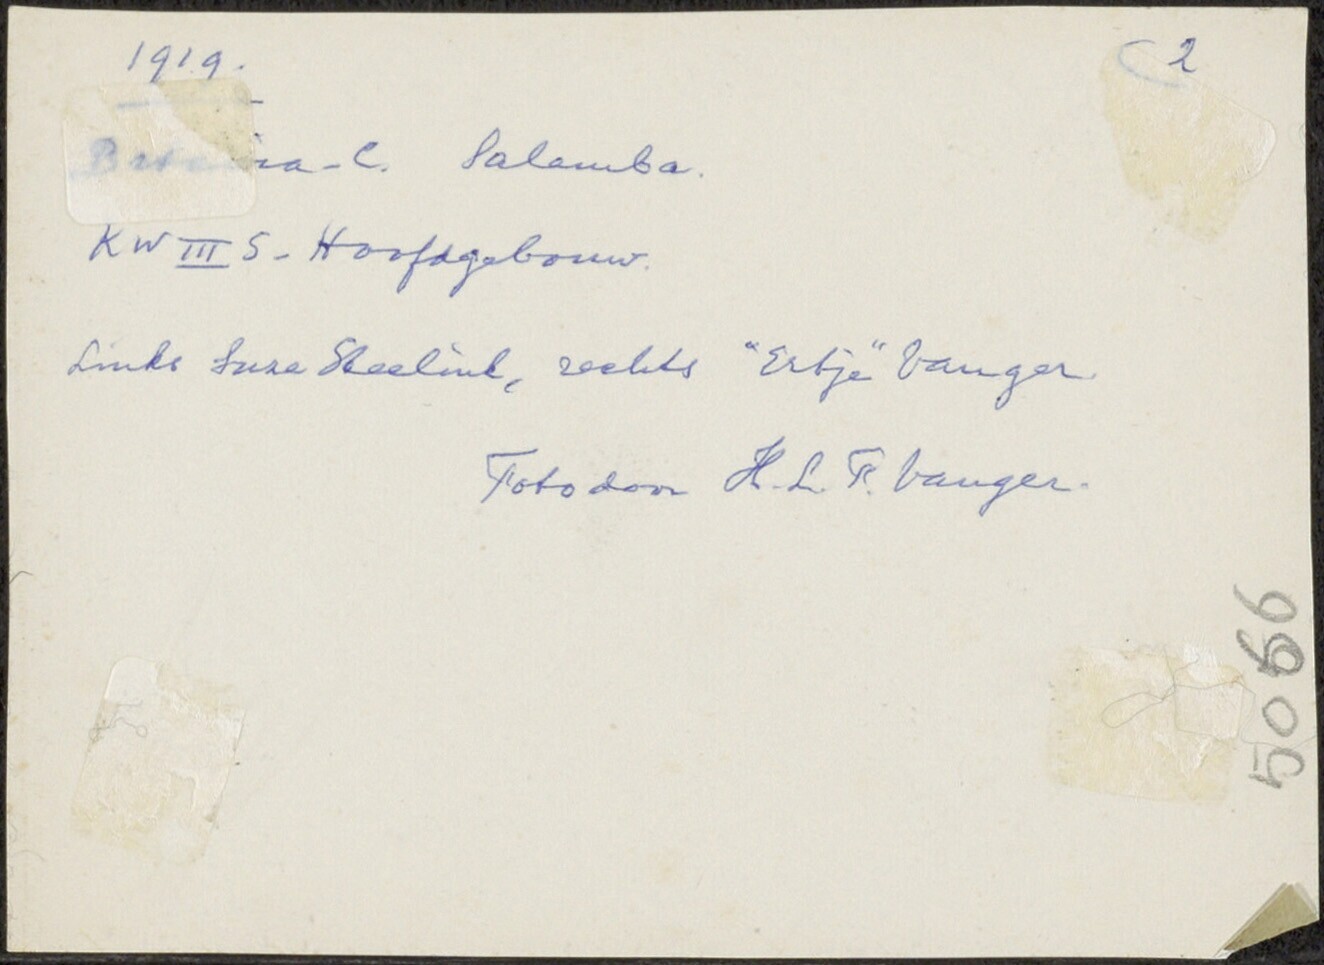 1919.
2
Batavia-C. Salemba.
KW III S - Hoofdgebouw.
Links Suze Steelink, rechts "Erbje" Vanger
Foto door H. L. F. Vanger.
5066